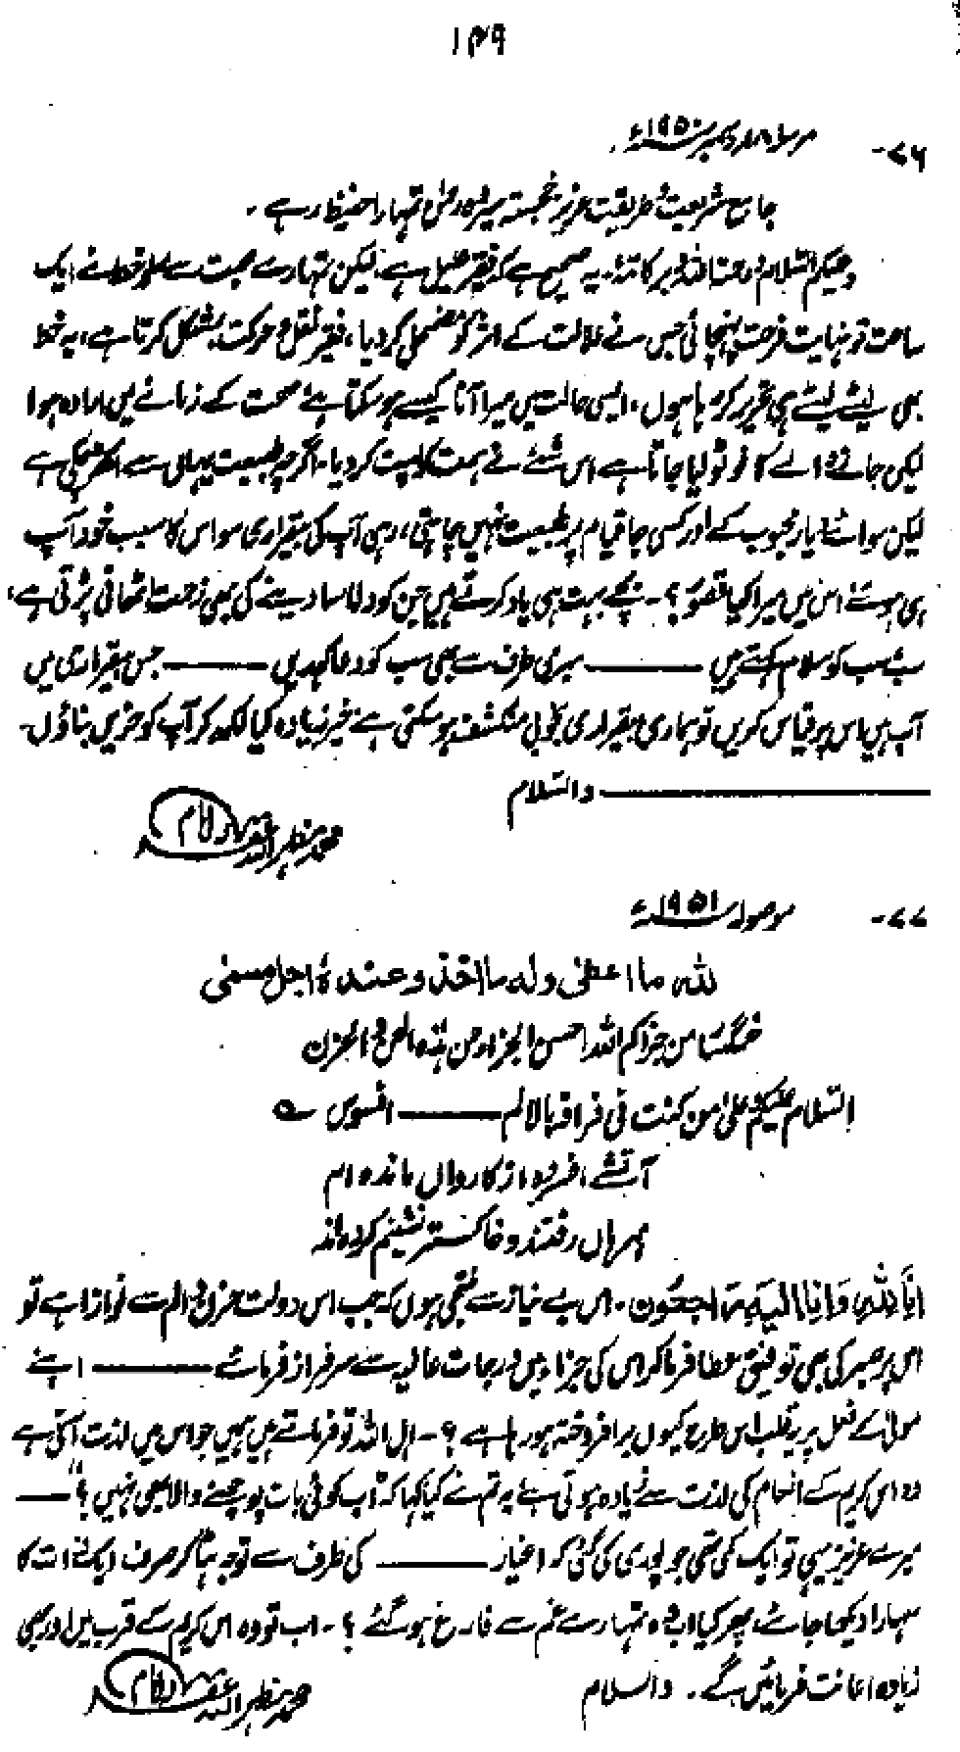 ۱۴۹
۷۶- مرسلہ ۱۸ دسمبر ۱۹۵۰ء
جامع شریعت و طریقت عزیز خجستہ سیر مولیٰ تمہارا حفیظ رہے۔
وعلیکم السلام ورحمۃ اللہ وبرکاتہٗ۔ یہ صحیح ہے کہ فقیر علیل ہے، لیکن تمہارے محبت سے مملو خط نے ایک
ساعت تو نہایت فرحت پہنچائی جس نے علالت کے اثر کو مضمحل کردیا، فقیر نقل و حرکت بمشکل کرتا ہے، یہ خط
بھی لیٹے لیٹے ہی تحریر کر رہا ہوں، ایسی حالت میں میرا آنا کیسے ہوسکتا ہے، صحت کے زمانے میں ارادہ ہوا
لیکن جانے والے کا فوٹو لیا جاتا ہے اس شئے نے ہمت کو پست کردیا۔ اگرچہ طبیعت یہاں سے اکھڑ چکی ہے
لیکن سوائے دیارِ محبوب کے اور کسی جا قیام پر طبیعت نہیں چاہتی، رہی آپ کی بیقراری سو اس کا سبب خود آپ
ہی ہوئے اس میں میرا کیا قصور؟۔ بچے بہت ہی یاد کرتے ہیں جن کو دلاسا دینے کی بھی زحمت اٹھانی پڑتی ہے،
سب سب کو سلام کہتے ہیں ——— میری طرف سے بھی سب کو دعا کہدیں ——— جس بیقراری میں
آپ ہیں اس پر قیاس کریں تو ہماری بیقراری بخوبی منکشف ہوسکتی ہے خیر زیادہ کیا لکھ کر آپ کو حزیں بناؤں۔
——— والسلام
محمد مظہر اللہ غفرلہ امام
۷۷- موصولہ ۱۹۵۱ء
للہ ما اعطٰی ولہ ما اخذ وعندہٗ اجل مسمٰی
غمگسار من جزاکم اللہ احسن الجزاء من ہذہ الحزن
السلام علیکم علیٰ من کنت فی فراقہ بالالم ——— افسوس ؎
آتشے افسردہ از کارواں ماندہ ام
ہمرہاں رفتند و خاکستر نشینم کردہ اند
انا للہ وانا الیہ راجعون۔ اس بے نیاز سے ملتجی ہوں کہ جب اس دولت حزن و الم سے نوازا ہے تو
اس پر صبر کی بھی توفیق عطا فرما کر اس کی جزاء میں درجات عالیہ سے سرفراز فرمائے ——— اپنے
مولیٰ کے فعل پر یہ قلب اس طرح کیوں برافروختہ ہورہا ہے؟۔ اہل اللہ تو فرماتے ہیں ہمیں جو اس میں لذت آتی ہے
وہ اس کریم کے انعام کی لذت سے زیادہ ہوتی ہے یہ تم نے کیا کہا کہ "اب کوئی بات پوچھنے والا بھی نہیں"؟ ———
میرے عزیز یہی تو ایک کمی تھی جو پوری کی گئی کہ اغیار ——— کی طرف سے توجہ ہٹا کر صرف ایک ذات کا
سہارا دیکھا جائے، پھر کیا اب وہ تمہارے غم سے فارغ ہوگئے؟۔ اب تو وہ اس کریم کے قرب میں اور بھی
زیادہ اعانت فرمائیں گے۔ والسلام
محمد مظہر اللہ غفرلہ امام